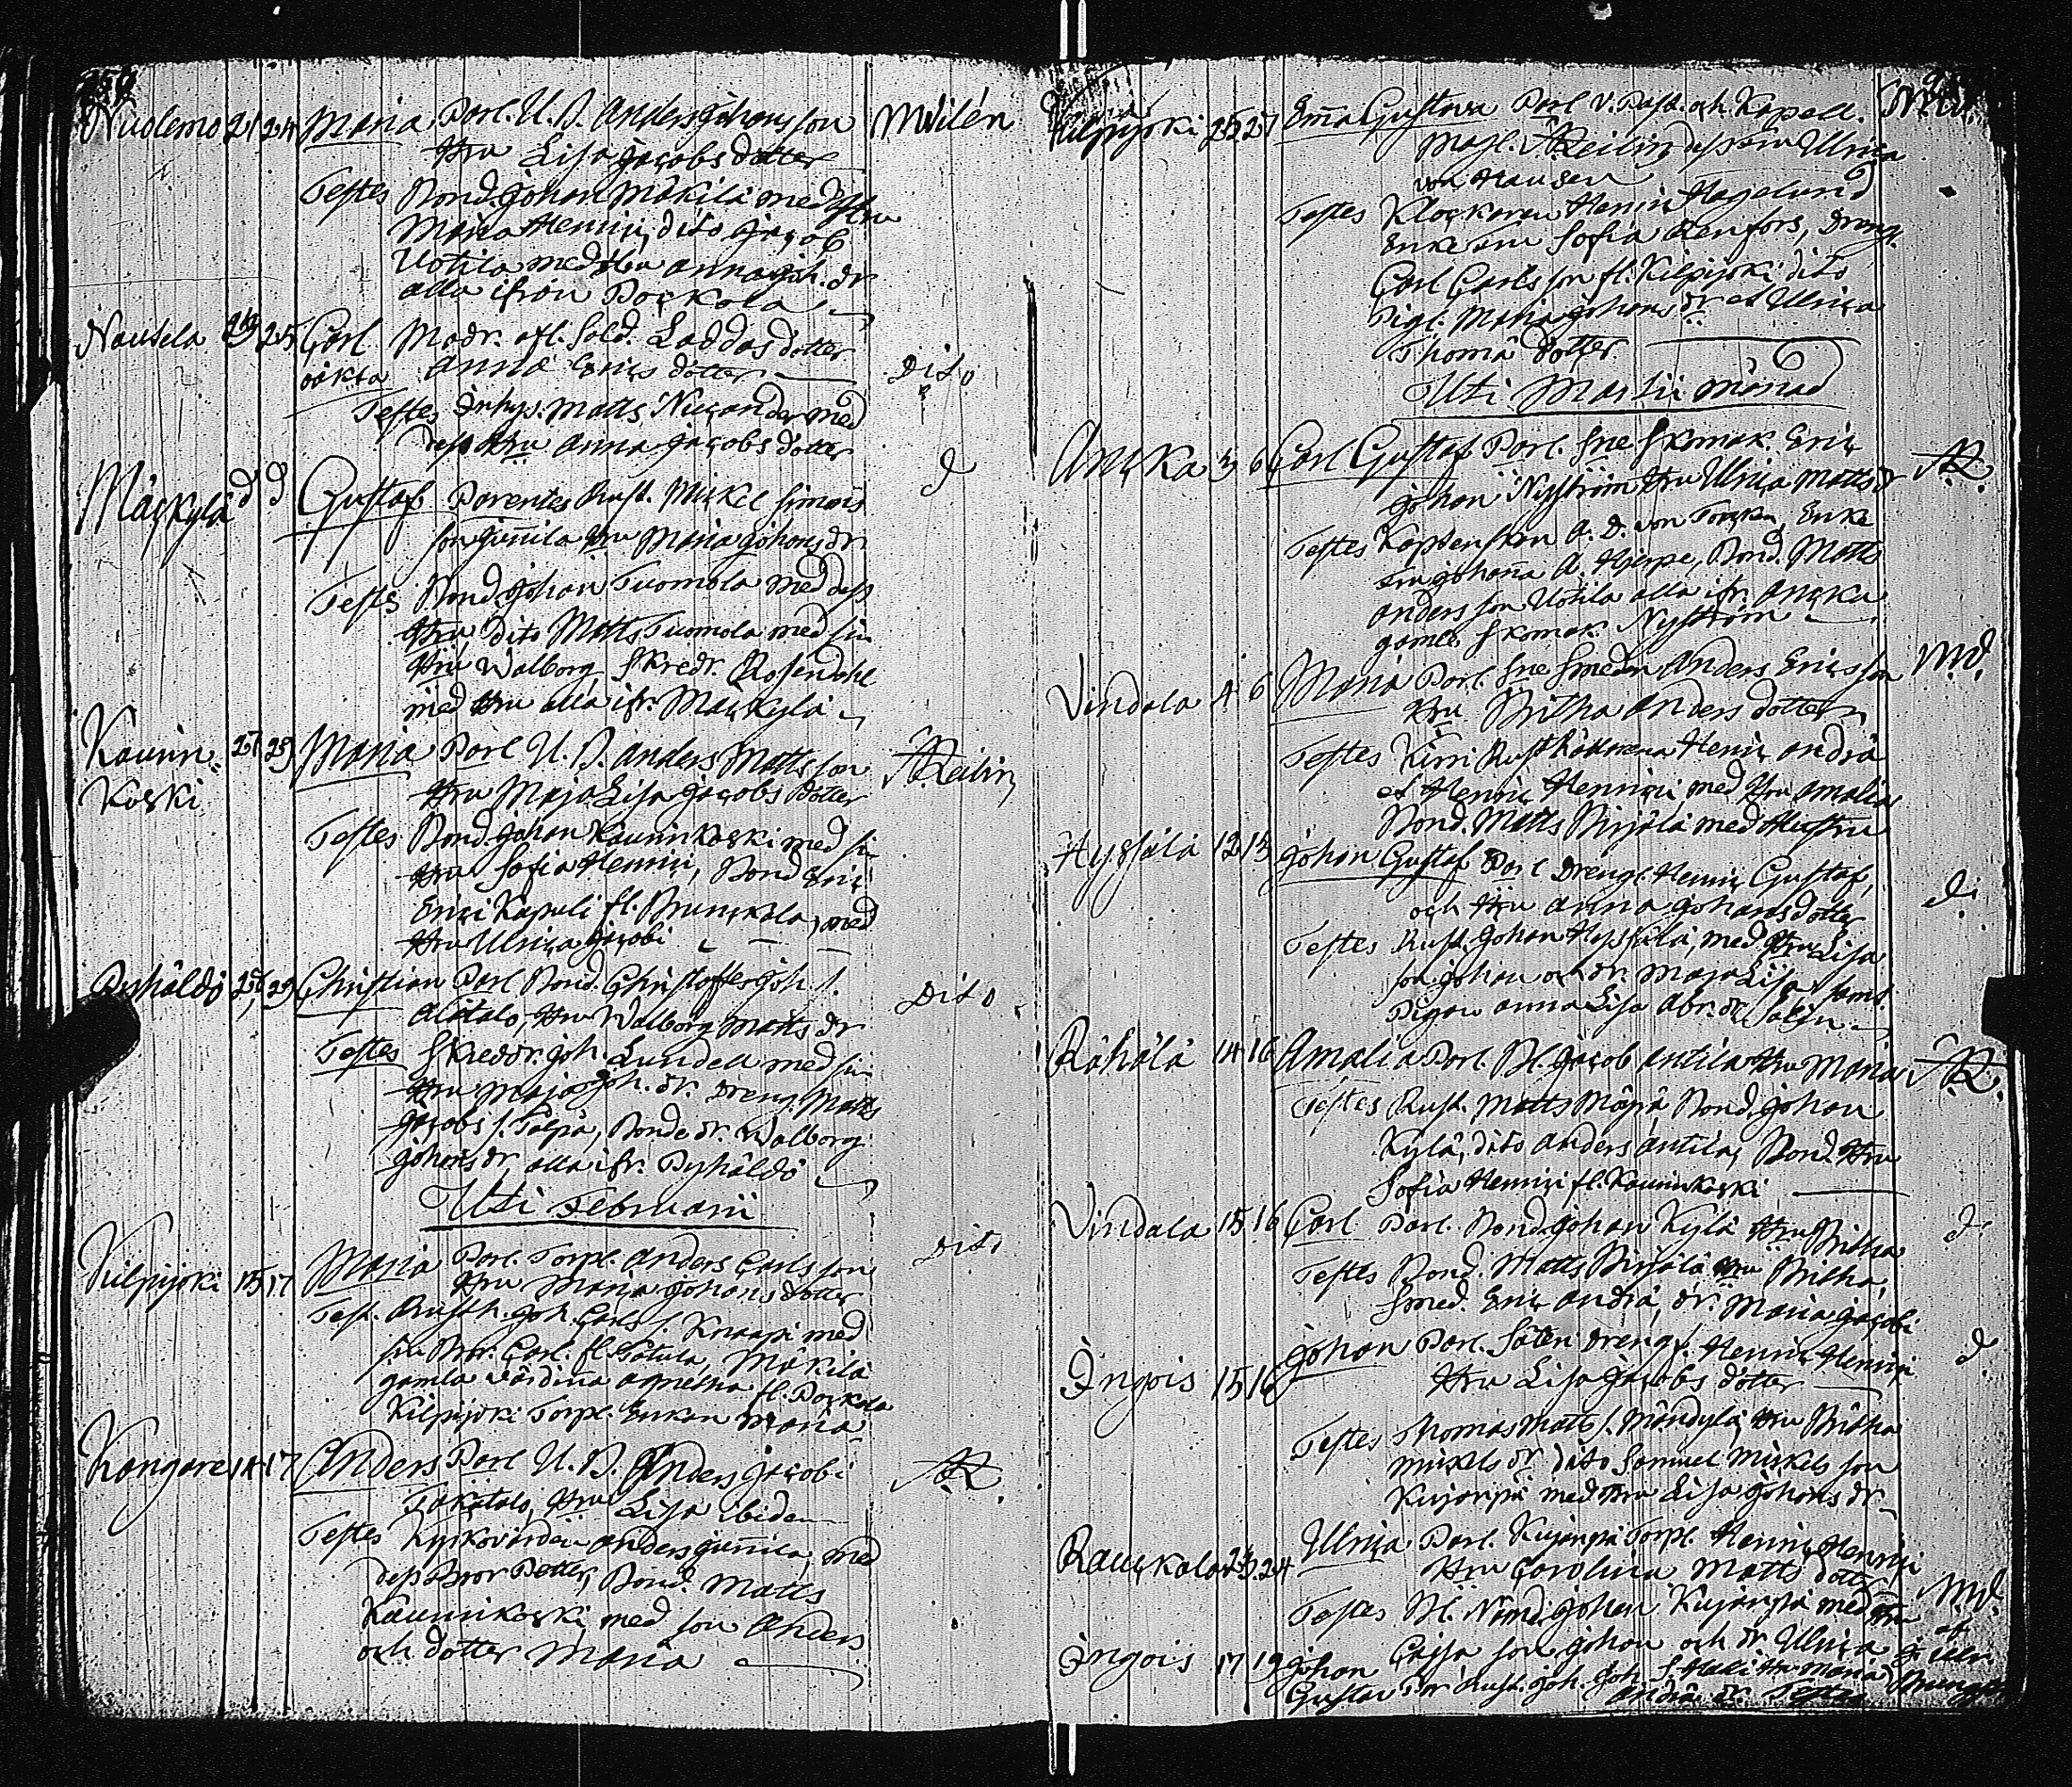 Nuolemo 21 24 Maria Parl. U. B. Anders Johansson M Wilén
Hru Lisa Jacobs dotter
Testes Bond. Johan Mäkilä med Hru
Maria Henrici, dito Jacob
Uotila med Hru Anna Joh. dr
alla ifrån Porkola
Nautela 23 25 Carl Modr. afl. Sold. Laddas dotter
oäkta Anna Erics dotter Dito
Testes Inhys. Matts Nicander med
dess Hru Anna Jacobs dotter
Mäskylä d d Gustaf Parentes Rust. Mickel Simons d
son Junnila Hru Maria Johans dr
Testes Bond. Johan Tuomola med dess
Hru dito Matts Tuomola med sin
Hru Walborg Skredr. Rosendahl
med Hru alla ifr. Mäskylä
Kaunin- 27 29 Maria Parl. U. B. Anders Mattsson A Reilin
koski Hru Maja Lisa Jacobs dotter
Testes Bond. Johan Kauninkoski med sin
Hru Sofia Henrici, Bond Eric
Erici Kapuli fl. Prunckala, med
Hru Ulrica Jacobi
Pyhäldö 28 29 Christian Parl. Bond. Christoffer Joh. s. Dito
Alatalo, Hru Walborg Matts dr
Testes Skreddr. Joh. Lundell med sin
Hru Maja Joh. dr. Dreng. Matts
Jacobs s. Talpa, Bonde dr. Walborg
Johans dr alla ifr. Pyhäldö
Uti Februarii
Kilpijoki 15 17 Maria Parl. Torp. Anders Carlsson Dito
Hru Maria Johans dotter
Test. Rusth. Joh. Carls s. Knaapi med
sin Bror Carl fl. Mäkilä
gamla värdina Agnetha fl. Porkola
Kilpijoki Torp. Enkan Maria
Kangare 14 17 Anders Parl. U. B. Anders Jacobi AR.
Hru Lisa ibidem
Testes Kyrkovärden Anders Junnila, med
dess Bror Petter, Bond. Matts
Kauninkoski med son Anders
och dotter Maria
Kilpijoki 25 27 Em̅a Gustava Parl. V. Past. och Kapell.
Mag. A Reilin dess Fru Ulrica
von Hausen
Testes Klockaren Henric Hagelund
Enke Fru Sofia Renfors, Dreng.
Carl Carlsson fl. Kilpijoki dito
Pig. Maria Johans dr et Ulrica
Thomä dotter
Uti Martii månad
Ancka 3 6 Carl Gustaf Parl. Sne Skomak. Eric AR.
Johan Nyström Hru Ulrica Matts dr
Testes Kaptenskan A. D. von Torcken, Enke
Fru Johanna A. Hjerpe, Bond. Matts
Andersson Uotila alla ifr. Ancka
gamle Skomak. Nyström
Vindala 4 6 Maria Parl. Sne Smeden Anders Ericsson MW.
Hru Britha Anders dotter
Testes Henric Andrä
et Henric Henrici med Hru Amalia
Bond. Matts Pirjälä med Hustru
Hyssälä 12 13 Johan Gustaf Parl. Dreng. Henric Gustaf, d:
och Hru Anna Johans dotter
Testes Rust. Johan Hyssälä, med Hru Lisa
son Johan och dr. Maja Lisa samt
Pigan Anna Lisa Abr. dr
Rähälä 14 16 Amalia Parl. Bl. Jacob Antila Hru Maria AR.
Testes Rust. Matts Bond. Johan
Kylä, dito Anders Antila, Bond. Hru
Sofia Henrici fl. Kauninkoski
Vindala 15 16 Carl Parl. Bond. Johan Kylä Hru Britha d:
Testes Bond. Matts Pirjälä Hru Britha
Smed. Eric Andrä, dr. Maria Jacobi
Ingois 15 16 Johan Parl. Säteri Dreng. Henric Henrici d.
Hru Lisa Jacobs dotter
Testes Thomas Matts s. Hru Britha
Mickels dr dito Samuel Mickelsson
Kujanpä med Hru Lisa Johans dr
Rauckala 23 24 Ulrica Parl. Kujanpä Torp. Henric Henrici
Hru Carolina Matts dotter MW.
Testes Bl. Nämd. Johan Kujanpä med Hru
Cajsa son Johan och dr Ulrica
Ingois 17 19 Johan
Gustav Rust. Joh. Joh. s. Hru Maria
Andrä dr. Testes